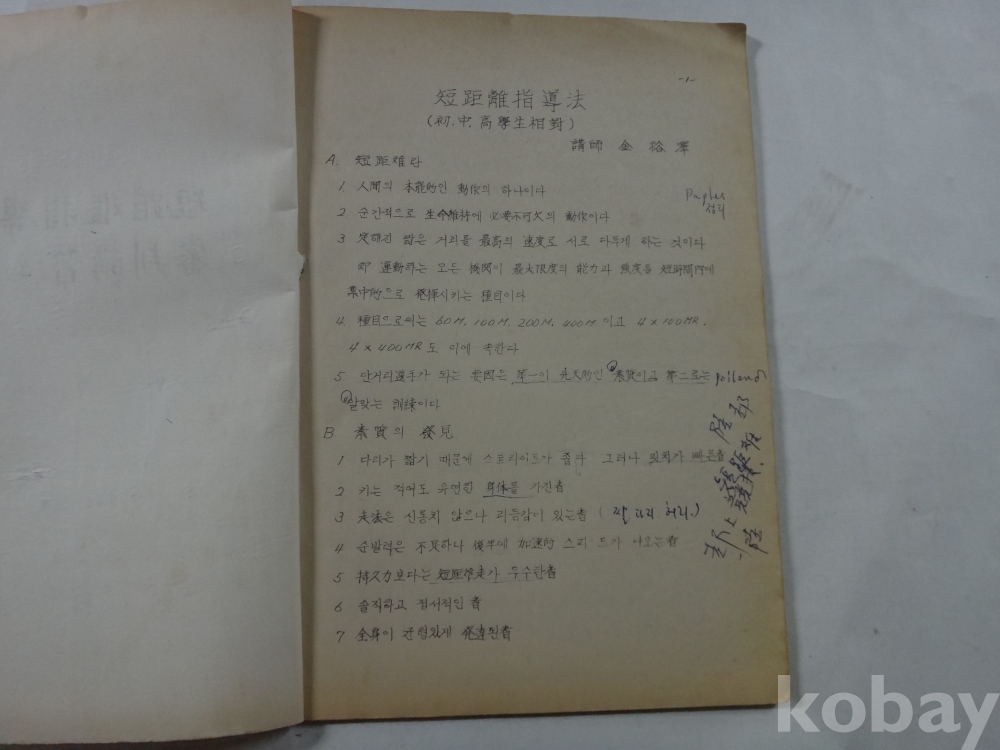 -1-
短距離指導法
(初.中.高學生相對)
講師 金 裕 澤
A. 短距離란
1. 人間의 本能的인 動作의 하나이다
2 순간적으로 生命維持에 必要不可欠의 動作이다
3 定해진 짧은 거리를 最高의 速度로 서로 다투게 하는 것이다
即 運動하는 모든 機関이 最大限度의 能力과 強度를 短時間內에
集中的으로 発揮시키는 種目이다
4. 種目으로써는 60M, 100M, 200M, 400M 이고 4×100MR,
4×400MR도 이에 속한다
5. 단거리選手가 되는 要因은 第一이 先天的인 素質이고 第二로는
알맞는 訓練이다
B 素質의 發見
1 다리가 짧기 때문에 스트라이드가 좁다 그러나 빠른者
2 키는 적어도 유연한 身体를 가진者
3 走法은 신통치 않으나 리듬감이 있는者 ( 다리 허리.)
4 순발력은 不足하나 後半에 加速的 스피드가 나오는者
5 持久力보다는 短距離走가 우수한者
6 솔직하고 정서적인 者
7 全身이 균형있게 発達된者
kobay